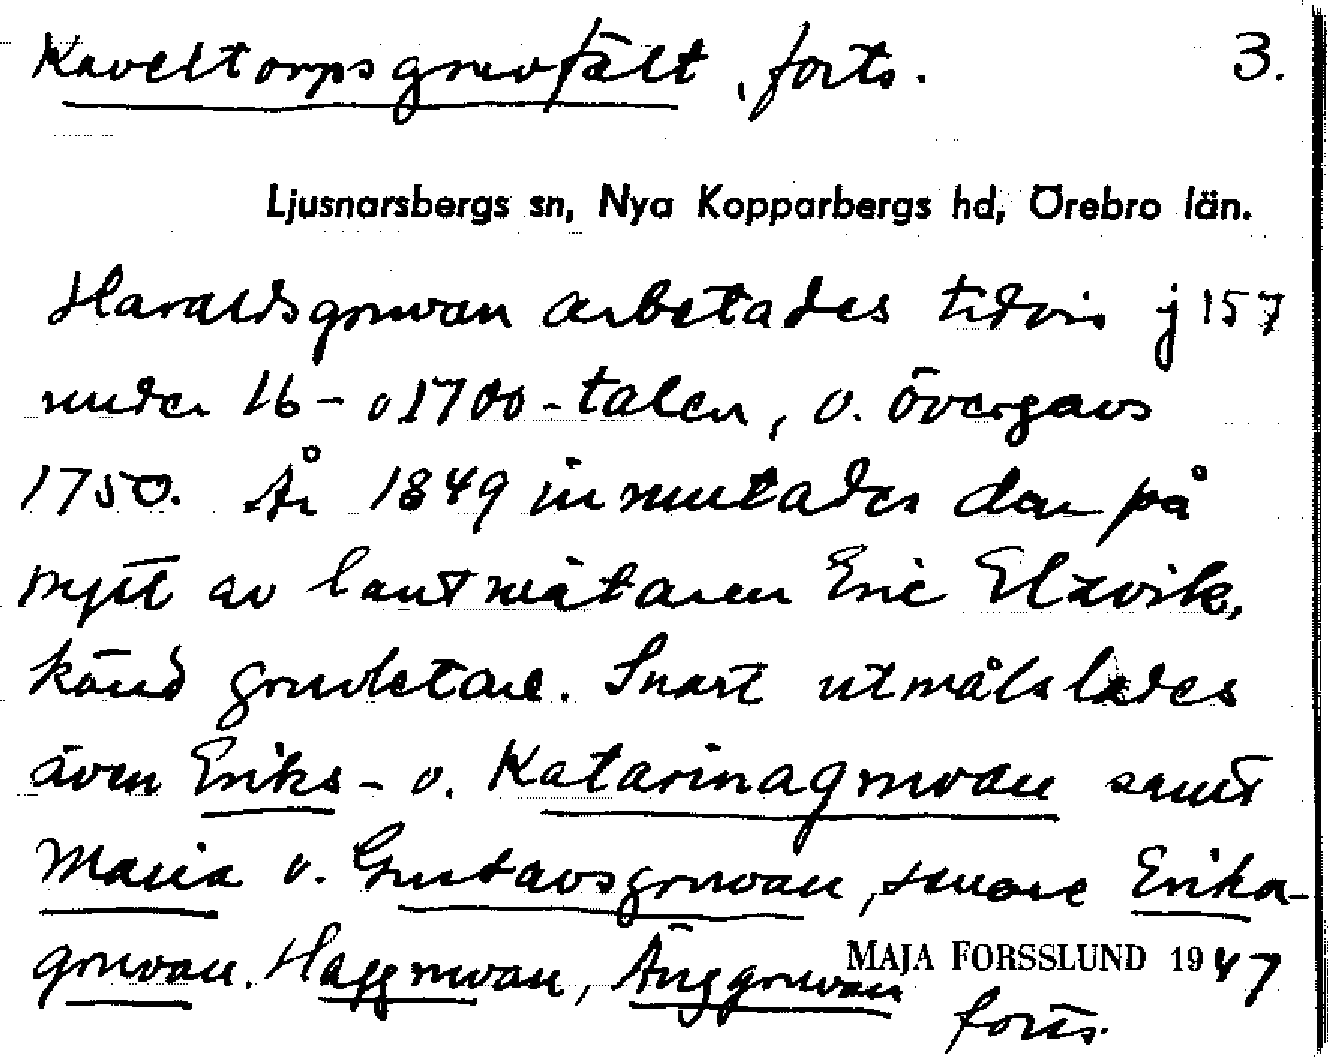 Kaveltorpsgruvfält, forts. 3.
Ljusnarsbergs sn, Nya Kopparbergs hd, Örebro län.
Haraldsgruvan arbetades tidvis j 157
under 16- o 1700-talen, o. övergavs
1750. År 1849 inmutades den på
nytt av lantmätaren Eric Elzvik,
känd gruvletare. Snart utmålslades
även Eriks- o. Katarinagruvan samt
Maria o. Gustavsgruvan, senare Erika-
gruvan. Haggruvan, Änggruvan
MAJA FORSSLUND 1947
forts.